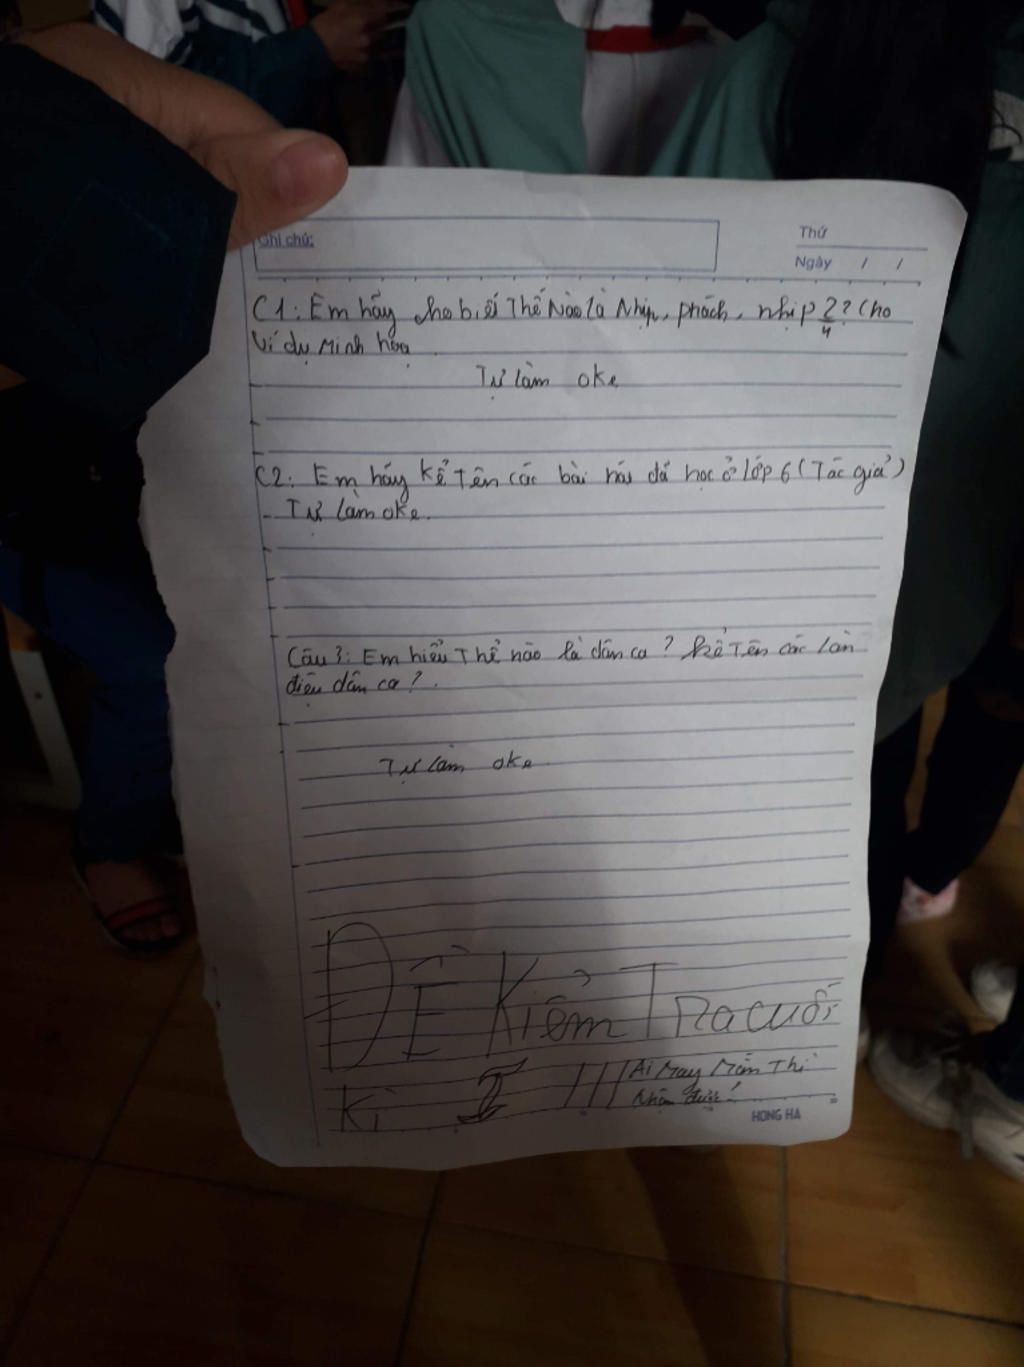 Ghi chú:
Thứ
Ngày / /
C1: Em hãy cho biết Thế Nào là Nhịp, phách, nhịp 2/4? Cho
Ví dụ Minh họa
Tự làm oke
C2: Em hãy kể Tên các bài hát đã học ở lớp 6 (Tác giả)
- Tự làm oke.
Câu 3: Em hiểu Thế nào là dân ca? kể Tên các làn
điệu dân ca?.
Tự làm oke
ĐỀ Kiểm Tra cuối
Kì I !!! Ai May Mắn Thì
Nhận được!
HONG HA